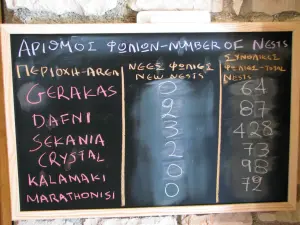 ΑΡΙΘΜΟΙ ΦΩΛΙΩΝ-NUMBER OF NESTS
ΠΕΡΙΟΧΗ-AREA ΝΕΕΣ ΦΩΛΙΕΣ NEW NESTS ΣΥΝΟΛΙΚΕΣ ΦΩΛΙΕΣ-TOTAL NESTS
GERAKAS 0 64
DAFNI 2 87
SEKANIA 3 428
CRYSTAL 2 73
KALAMAKI 0 98
MARATHONISI 0 72